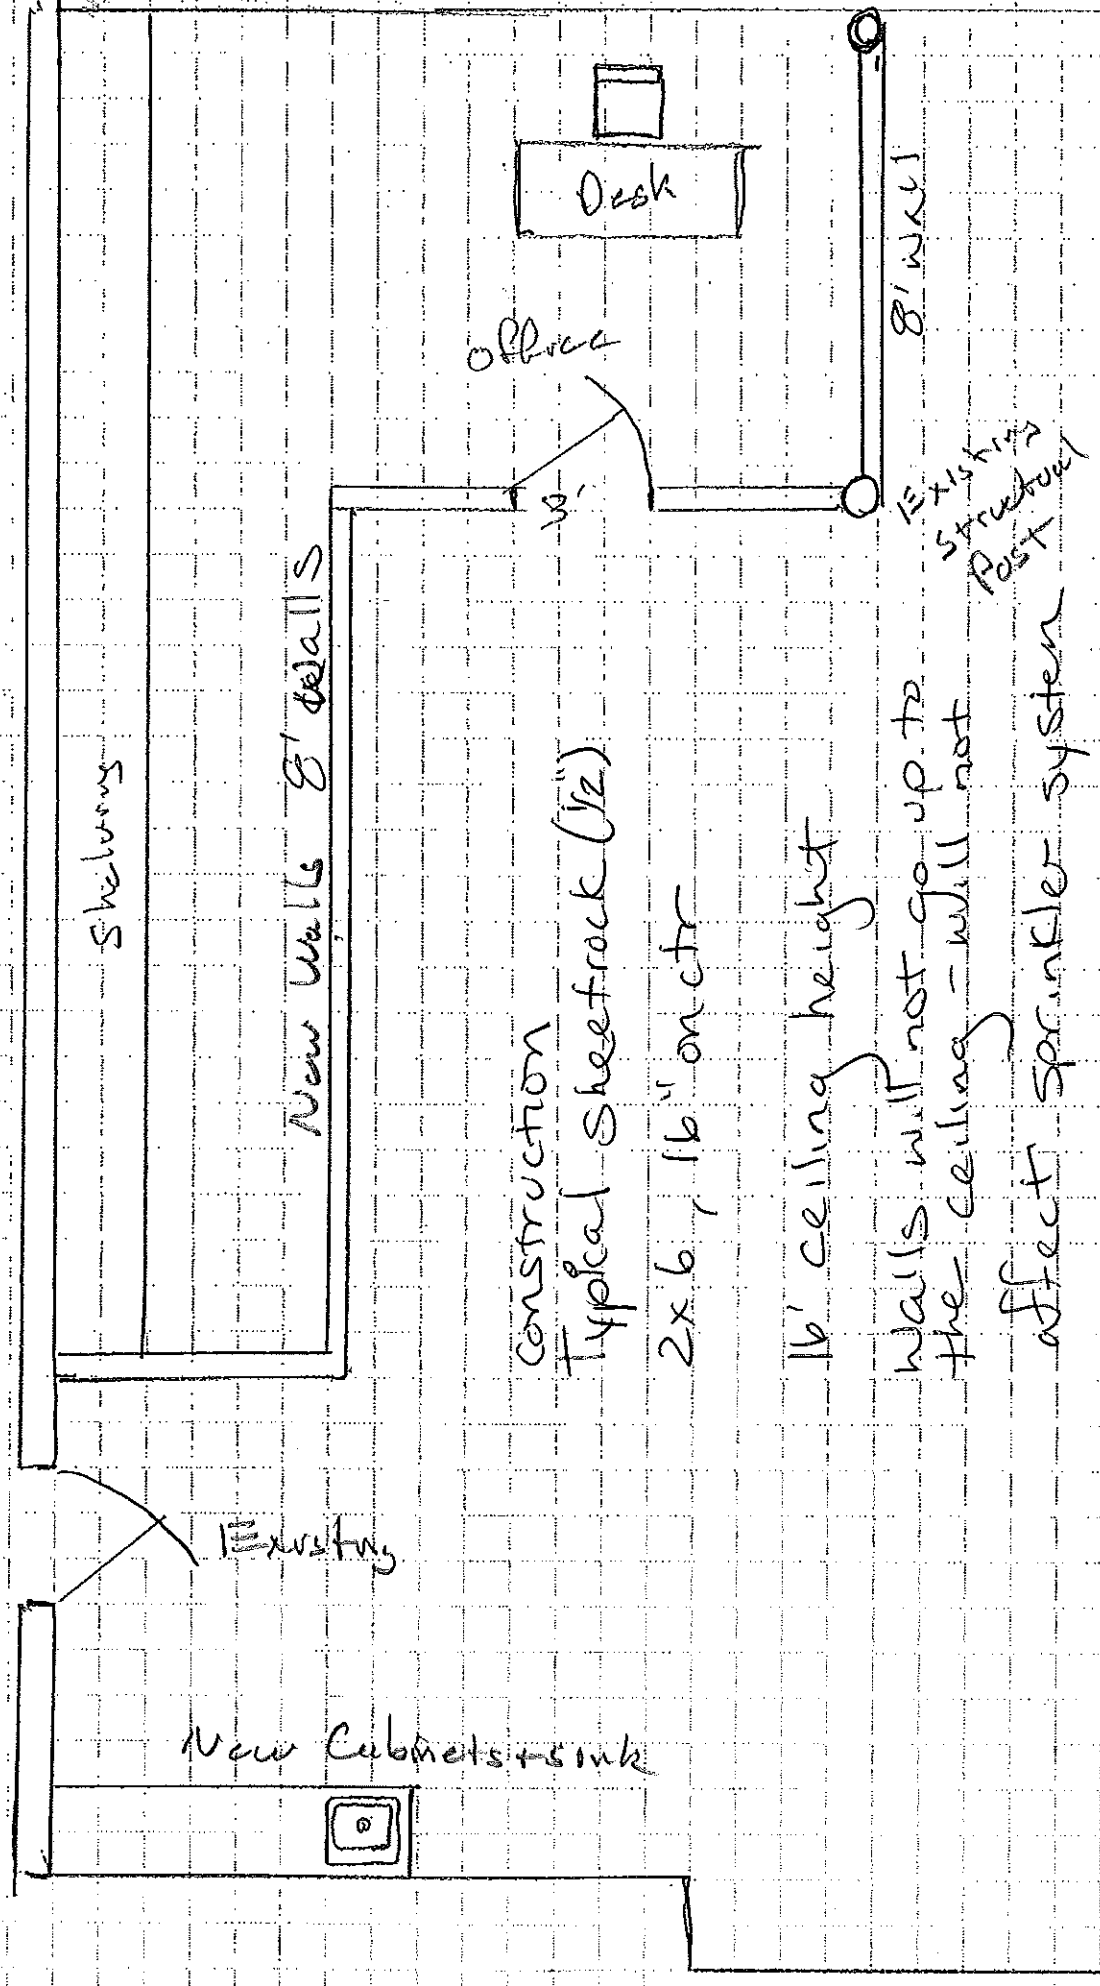 Desk
8' wall
office
3'
Existing
Structural
Post
Shelving
New Walls 8' walls
Construction
Typical sheetrock (1/2")
2x6, 16" on ctr
16' ceiling height
Walls will not go up to
the ceiling - will not
affect sprinkler system
Existing
New Cabinets + sink